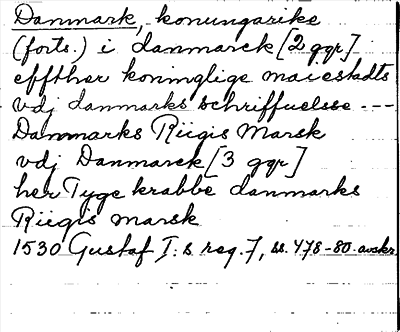 Danmark, konungarike
(forts.) i danmarck [2 ggr]
effther koninglige maiestadts
vdj danmarks schriffuelsse ---
Danmarks Riigis Marsk
vdj Danmarck [3 ggr]
her Tyge krabbe danmarks
Riigis marsk
1530 Gustaf I:s reg. 7, ss. 478-80. avskr.